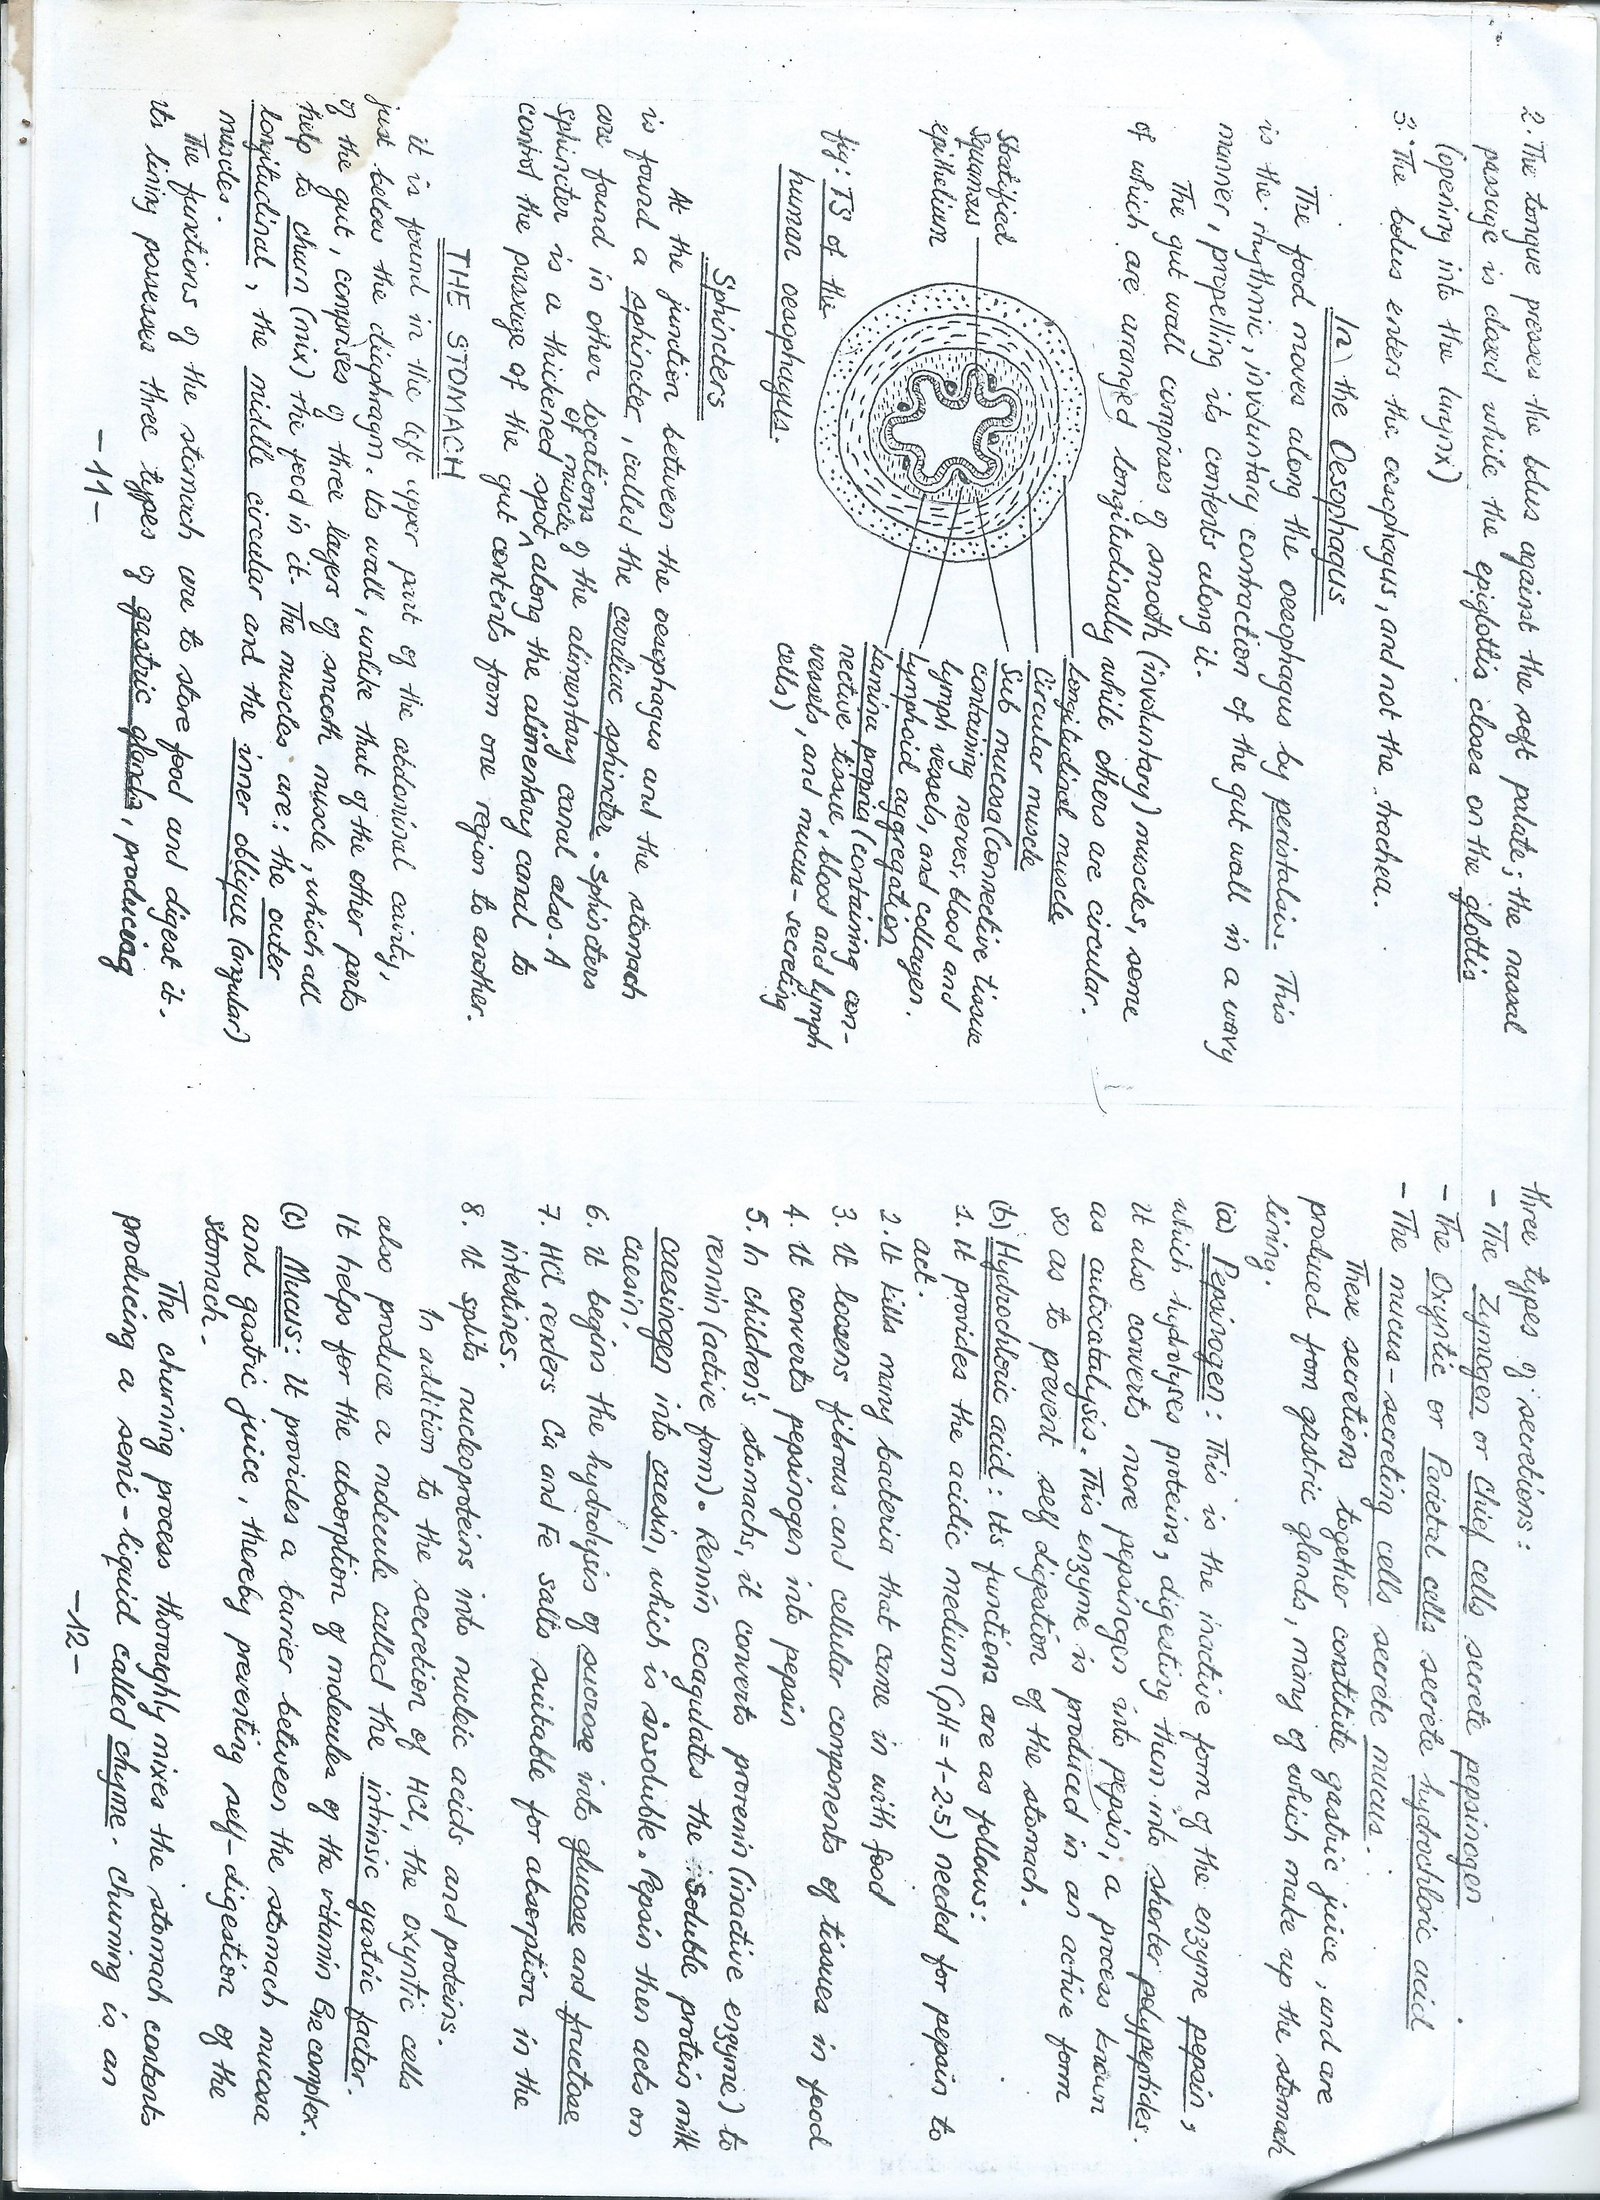 2. The tongue presses the bolus against the soft palate; the nassal
passage is closed while the epiglottis closes on the glottis
(opening into the larynx)
3. The bolus enters the oesophagus, and not the trachea.
In the Oesophagus
The food moves along the oesophagus by peristalsis. This
is the rhythmic, involuntary contraction of the gut wall in a wavy
manner, propelling its contents along it.
The gut wall comprises of smooth (involuntary) muscles, some
of which are arranged longitudinally while others are circular.
Stratified
Squamous
epithelium
Longitudinal muscle
Circular muscle
Sub mucosa (connective tissue
containing nerves, blood and
lymph vessels, and collagen.
Lymphoid aggregation
Lamina propria (containing con-
nective tissue, blood and lymph
vessels, and mucus-secreting
cells)
fig: TS of the
human oesophagus.
Sphincters
At the junction between the oesophagus and the stomach
is found a sphincter, called the cardiac sphincter. Sphincters
are found in other locations of the alimentary canal also. A
sphincter is a thickened spot of muscle along the alimentary canal to
control the passage of the gut contents from one region to another.
THE STOMACH
it is found in the left upper part of the abdominal cavity,
just below the diaphragm. Its wall, unlike that of the other parts
of the gut, comprises of three layers of smooth muscle, which all
help to churn (mix) the food in it. The muscles are: the outer
longitudinal, the middle circular and the inner oblique (angular)
muscles.
The functions of the stomach are to store food and digest it.
its lining possesses three types of gastric glands, producing
-11-
three types of secretions:
- The Zymogen or Chief cells secrete pepsinogen
- The Oxyntic or Parietal cells secrete hydrochloric acid
- The mucus-secreting cells secrete mucus.
These secretions together constitute gastric juice, and are
produced from gastric glands, many of which make up the stomach
lining.
(a) Pepsinogen: This is the inactive form of the enzyme pepsin,
which hydrolyses proteins, digesting them into shorter polypeptides.
it also converts more pepsinogen into pepsin, a process known
as autocatalysis. This enzyme is produced in an active form
so as to prevent self digestion of the stomach.
(b) Hydrochloric acid: its functions are as follows:
1. it provides the acidic medium (pH = 1-2.5) needed for pepsin to
act.
2. It kills many bacteria that came in with food
3. it loosens fibrous and cellular components of tissues in food
4. it converts pepsinogen into pepsin
5. In children's stomachs, it converts prorenin (inactive enzyme) to
rennin (active form). Rennin coagulates the soluble protein milk
caesinogen into caesin, which is insoluble. Pepsin then acts on
caesin.
6. it begins the hydrolysis of sucrose into glucose and fructose
7. HCl renders Ca and Fe salts suitable for absorption in the
intestines.
8. it splits nucleoproteins into nucleic acids and proteins.
In addition to the secretion of HCl, the oxyntic cells
also produce a molecule called the intrinsic gastric factor.
It helps for the absorption of molecules of the vitamin B12 complex.
(c) Mucus: it provides a barrier between the stomach mucosa
and gastric juice, thereby preventing self-digestion of the
stomach.
The churning process thoroughly mixes the stomach contents
producing a semi-liquid called chyme. Churning is an
-12-